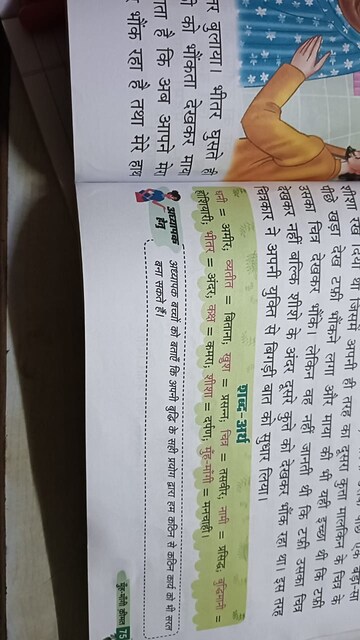 तर बुलाया। भीतर घुसते ही
को भौंकता देखकर माय
ता है कि अब आपने मे
भौंक रहा है तथा मेरे हाथ
पीछे खड़ा देख टफी भौंकने लगा और माया की भी यही इच्छा थी कि टफी
उसका चित्र देखकर भौंके। लेकिन वह नहीं जानती थी कि टफी उसका चित्र
देखकर नहीं बल्कि शीशे के अंदर दूसरे कुत्ते को देखकर भौंक रहा था। इस तरह
चित्रकार ने अपनी युक्ति से बिगड़ी बात को सुधार लिया।
शब्द-अर्थ
धनी = अमीर; व्यतीत = बिताना; खुश = प्रसन्न; चित्र = तस्वीर; नामी = प्रसिद्ध; बुद्धिमानी =
होशियारी; भीतर = अंदर; कक्ष = कमरा; शीशा = दर्पण; मुँह-माँगी = मनचाही।
अध्यापक हेतु
अध्यापक बच्चों को बताएँ कि अपनी बुद्धि के सही प्रयोग द्वारा हम कठिन से कठिन कार्य को भी सरल
बना सकते हैं।
मुँह-माँगी कीमत 75